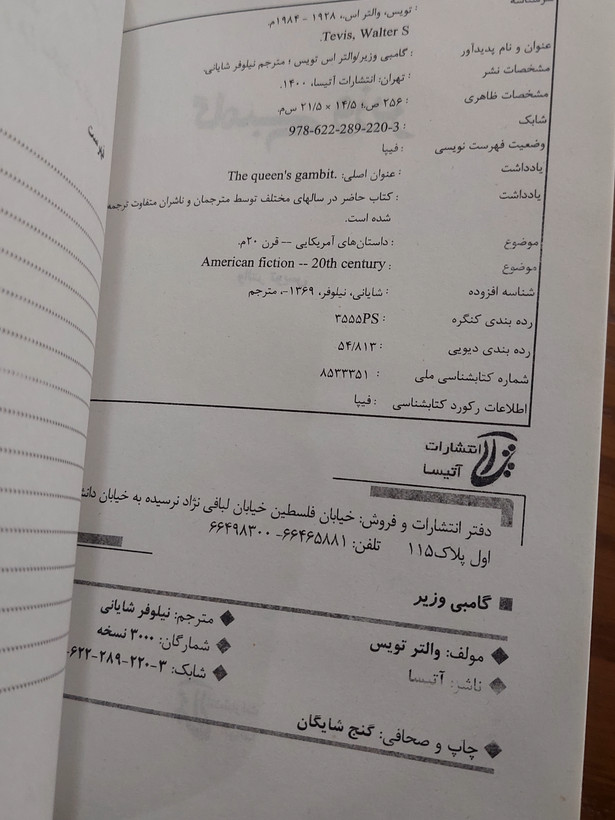 سرشناسه : تویس، والتر اس.، ۱۹۲۸ - ۱۹۸۴م.
Tevis, Walter S.
عنوان و نام پدیدآور : گامبی وزیر/والتر اس تویس ؛ مترجم نیلوفر شایانی.
مشخصات نشر : تهران: انتشارات آتیسا، ۱۴۰۰.
مشخصات ظاهری : ۲۵۶ ص.؛ ۱۴/۵ × ۲۱/۵ س‌م.
شابک : 978-622-289-220-3
وضعیت فهرست نویسی : فیپا
یادداشت : عنوان اصلی: .The queen's gambit
یادداشت : کتاب حاضر در سالهای مختلف توسط مترجمان و ناشران متفاوت ترجمه
شده است.
موضوع : داستان‌های آمریکایی -- قرن ۲۰م.
موضوع : American fiction -- 20th century
شناسه افزوده : شایانی، نیلوفر، ۱۳۶۹-، مترجم
رده بندی کنگره : ۳۵۵۵PS
رده بندی دیویی : ۵۴/۸۱۳
شماره کتابشناسی ملی : ۸۵۳۳۳۵۱
اطلاعات رکورد کتابشناسی : فیپا
انتشارات
آتیسا
دفتر انتشارات و فروش: خیابان فلسطین خیابان لبافی نژاد نرسیده به خیابان
اول پلاک۱۱۵ تلفن: ۶۶۴۶۵۸۸۱- ۶۶۴۹۸۳۰۰
گامبی وزیر
مولف: والتر تویس
مترجم: نیلوفر شایانی
ناشر: آتیسا
شمارگان: ۳۰۰۰ نسخه
شابک: ۳-۲۲۰-۲۸۹-۶۲۲-
چاپ و صحافی: گنج شایگان